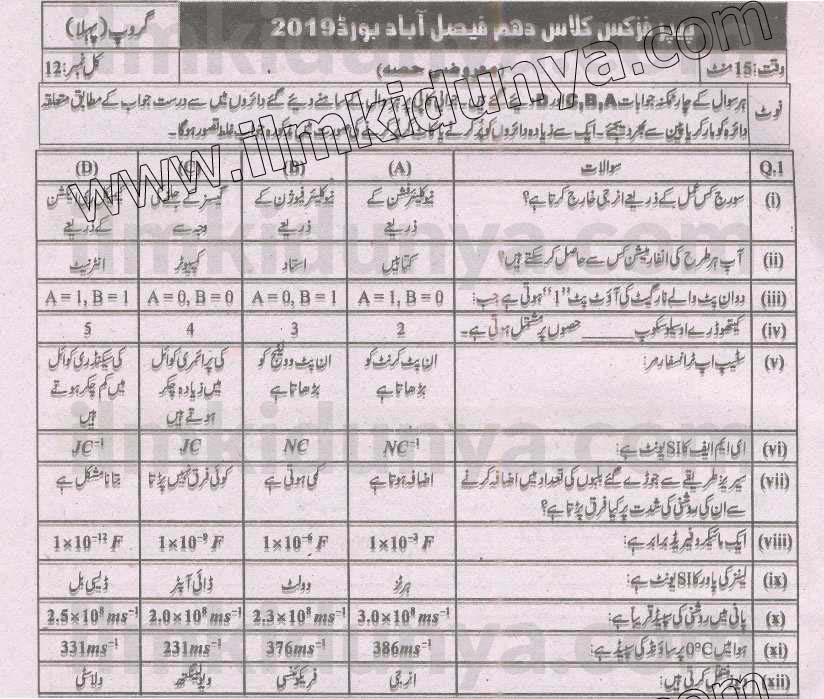 پیپر فزکس کلاس دہم فیصل آباد بورڈ 2019 گروپ (پہلا)
وقت: 15 منٹ معروضی حصہ) کل نمبر: 12
نوٹ ہر سوال کے چار ممکنہ جوابات C,B,A اور D دیئے گئے ہیں۔ جوابی کاپی پر ہر سوال کے سامنے دیئے گئے دائروں میں سے درست جواب کے مطابق متعلقہ
دائرہ کو مارکر یا پین سے بھر دیجئے۔ ایک سے زیادہ دائروں کو پُر کرنے یا کاٹ کر پُر کرنے کی صورت میں مذکورہ جواب غلط تصور ہوگا۔
Q.1 سوالات (A) (B) (C) (D)
(i) سورج کس عمل کے ذریعے انرجی خارج کرتا ہے؟ نیوکلیئر فشن کے نیوکلیئر فیوژن کے گیسز کے جلنے کی
ذریعے ذریعے وجہ سے کے ذریعے
(ii) آپ ہر طرح کی انفارمیشن کس سے حاصل کر سکتے ہیں؟ کتابیں استاد کمپیوٹر انٹرنیٹ
(iii) دو ان پٹ والے نار گیٹ کی آؤٹ پٹ "1" ہوتی ہے جب: A = 1, B = 0 A = 0, B = 1 A = 0, B = 0 A = 1, B = 1
(iv) کیتھوڈ رے اوسیلوسکوپ ______ حصوں پر مشتمل ہوتی ہے۔ 2 3 4 5
(v) سٹیپ اپ ٹرانسفارمر: ان پٹ کرنٹ کو ان پٹ وولٹیج کو کی پرائمری کوائل کی سیکنڈری کوائل
بڑھاتا ہے بڑھاتا ہے میں زیادہ چکر میں کم چکر ہوتے
ہوتے ہیں ہیں
(vi) ای ایم ایف کا SI یونٹ ہے: NC⁻¹ NC JC JC⁻¹
(vii) سیریز طریقے سے جوڑے گئے بلبوں کی تعداد میں اضافہ کرنے اضافہ ہوتا ہے کمی ہوتی ہے کوئی فرق نہیں پڑتا بتانا مشکل ہے
سے ان کی روشنی کی شدت پر کیا فرق پڑتا ہے؟
(viii) ایک مائیکرو فیریڈ برابر ہے: 1×10⁻³ F 1×10⁻⁶ F 1×10⁻⁹ F 1×10⁻¹² F
(ix) لینز کی پاور کا SI یونٹ ہے: ہرٹز وولٹ ڈائی آپٹر ڈیسی بل
(x) پانی میں روشنی کی سپیڈ تقریباً ہے: 3.0×10⁸ ms⁻¹ 2.3×10⁸ ms⁻¹ 2.0×10⁸ ms⁻¹ 2.5×10⁸ ms⁻¹
(xi) ہوا میں 0°C پر ساؤنڈ کی سپیڈ ہے: 386ms⁻¹ 376ms⁻¹ 231ms⁻¹ 331ms⁻¹
(xii) منتقل کرتی ہیں: انرجی فریکوئنسی ویولینگتھ ولاسٹی
www.ilmkidunya.com
ilmkidunya.com
ilmkidunya.com